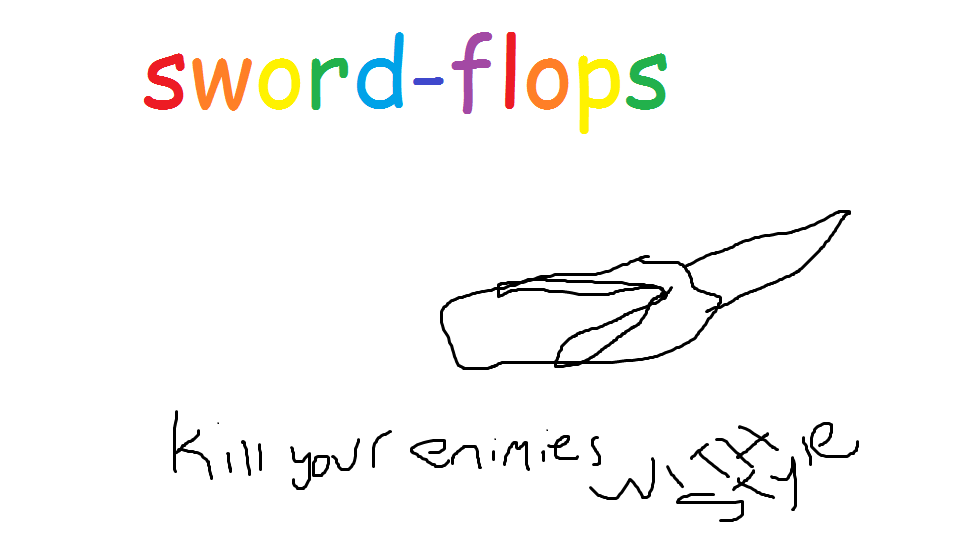 sword-flops
Kill your enimies with style